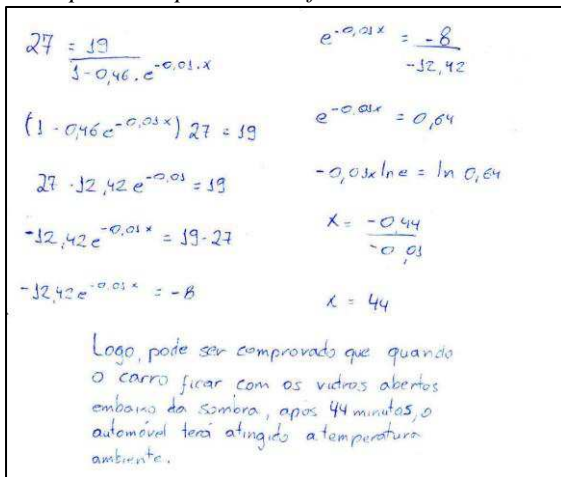 27 = 19
1-0,46.e^-0,01.x
(1-0,46e^-0,01x) 27 = 19
27 - 12,42e^-0,01 = 19
-12,42e^-0,01x = 19-27
-12,42e^-0,01x = -8
e^-0,01x = -8
-12,42
e^-0,01x = 0,64
-0,01x ln e = ln 0,64
x = -0,44
-0,01
x = 44
Logo, pode ser comprovado que quando
o carro ficar com os vidros abertos
embaixo da sombra, após 44 minutos, o
automóvel terá atingido a temperatura
ambiente.